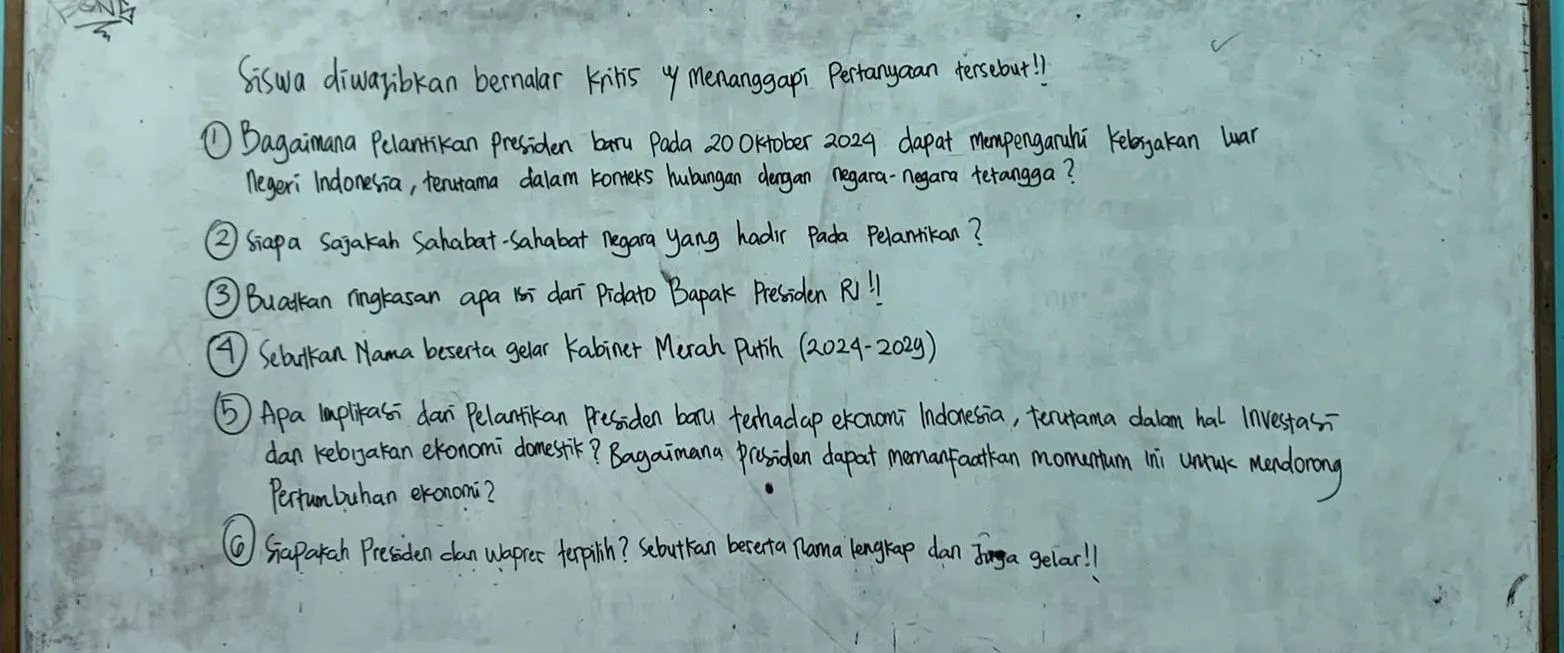 Siswa diwajibkan bernalar Kritis y/ Menanggapi Pertanyaan tersebut!!
① Bagaimana Pelantikan Presiden baru Pada 20 Oktober 2024 dapat mempengaruhi Kebijakan luar
Negeri Indonesia, terutama dalam konteks hubungan dengan negara-negara tetangga?
② Siapa Sajakah Sahabat-Sahabat Negara yang hadir Pada Pelantikan?
③ Buatkan ringkasan apa isi dari Pidato Bapak Presiden RI!!
④ Sebutkan Nama beserta gelar Kabinet Merah Putih (2024-2029)
⑤ Apa Implikasi dari Pelantikan Presiden baru terhadap ekonomi Indonesia, terutama dalam hal Investasi
dan kebijakan ekonomi domestik? Bagaimana Presiden dapat memanfaatkan momentum ini untuk Mendorong
Pertumbuhan ekonomi?
⑥ Siapakah Presiden dan Wapres terpilih? Sebutkan beserta Nama lengkap dan Juga gelar!!